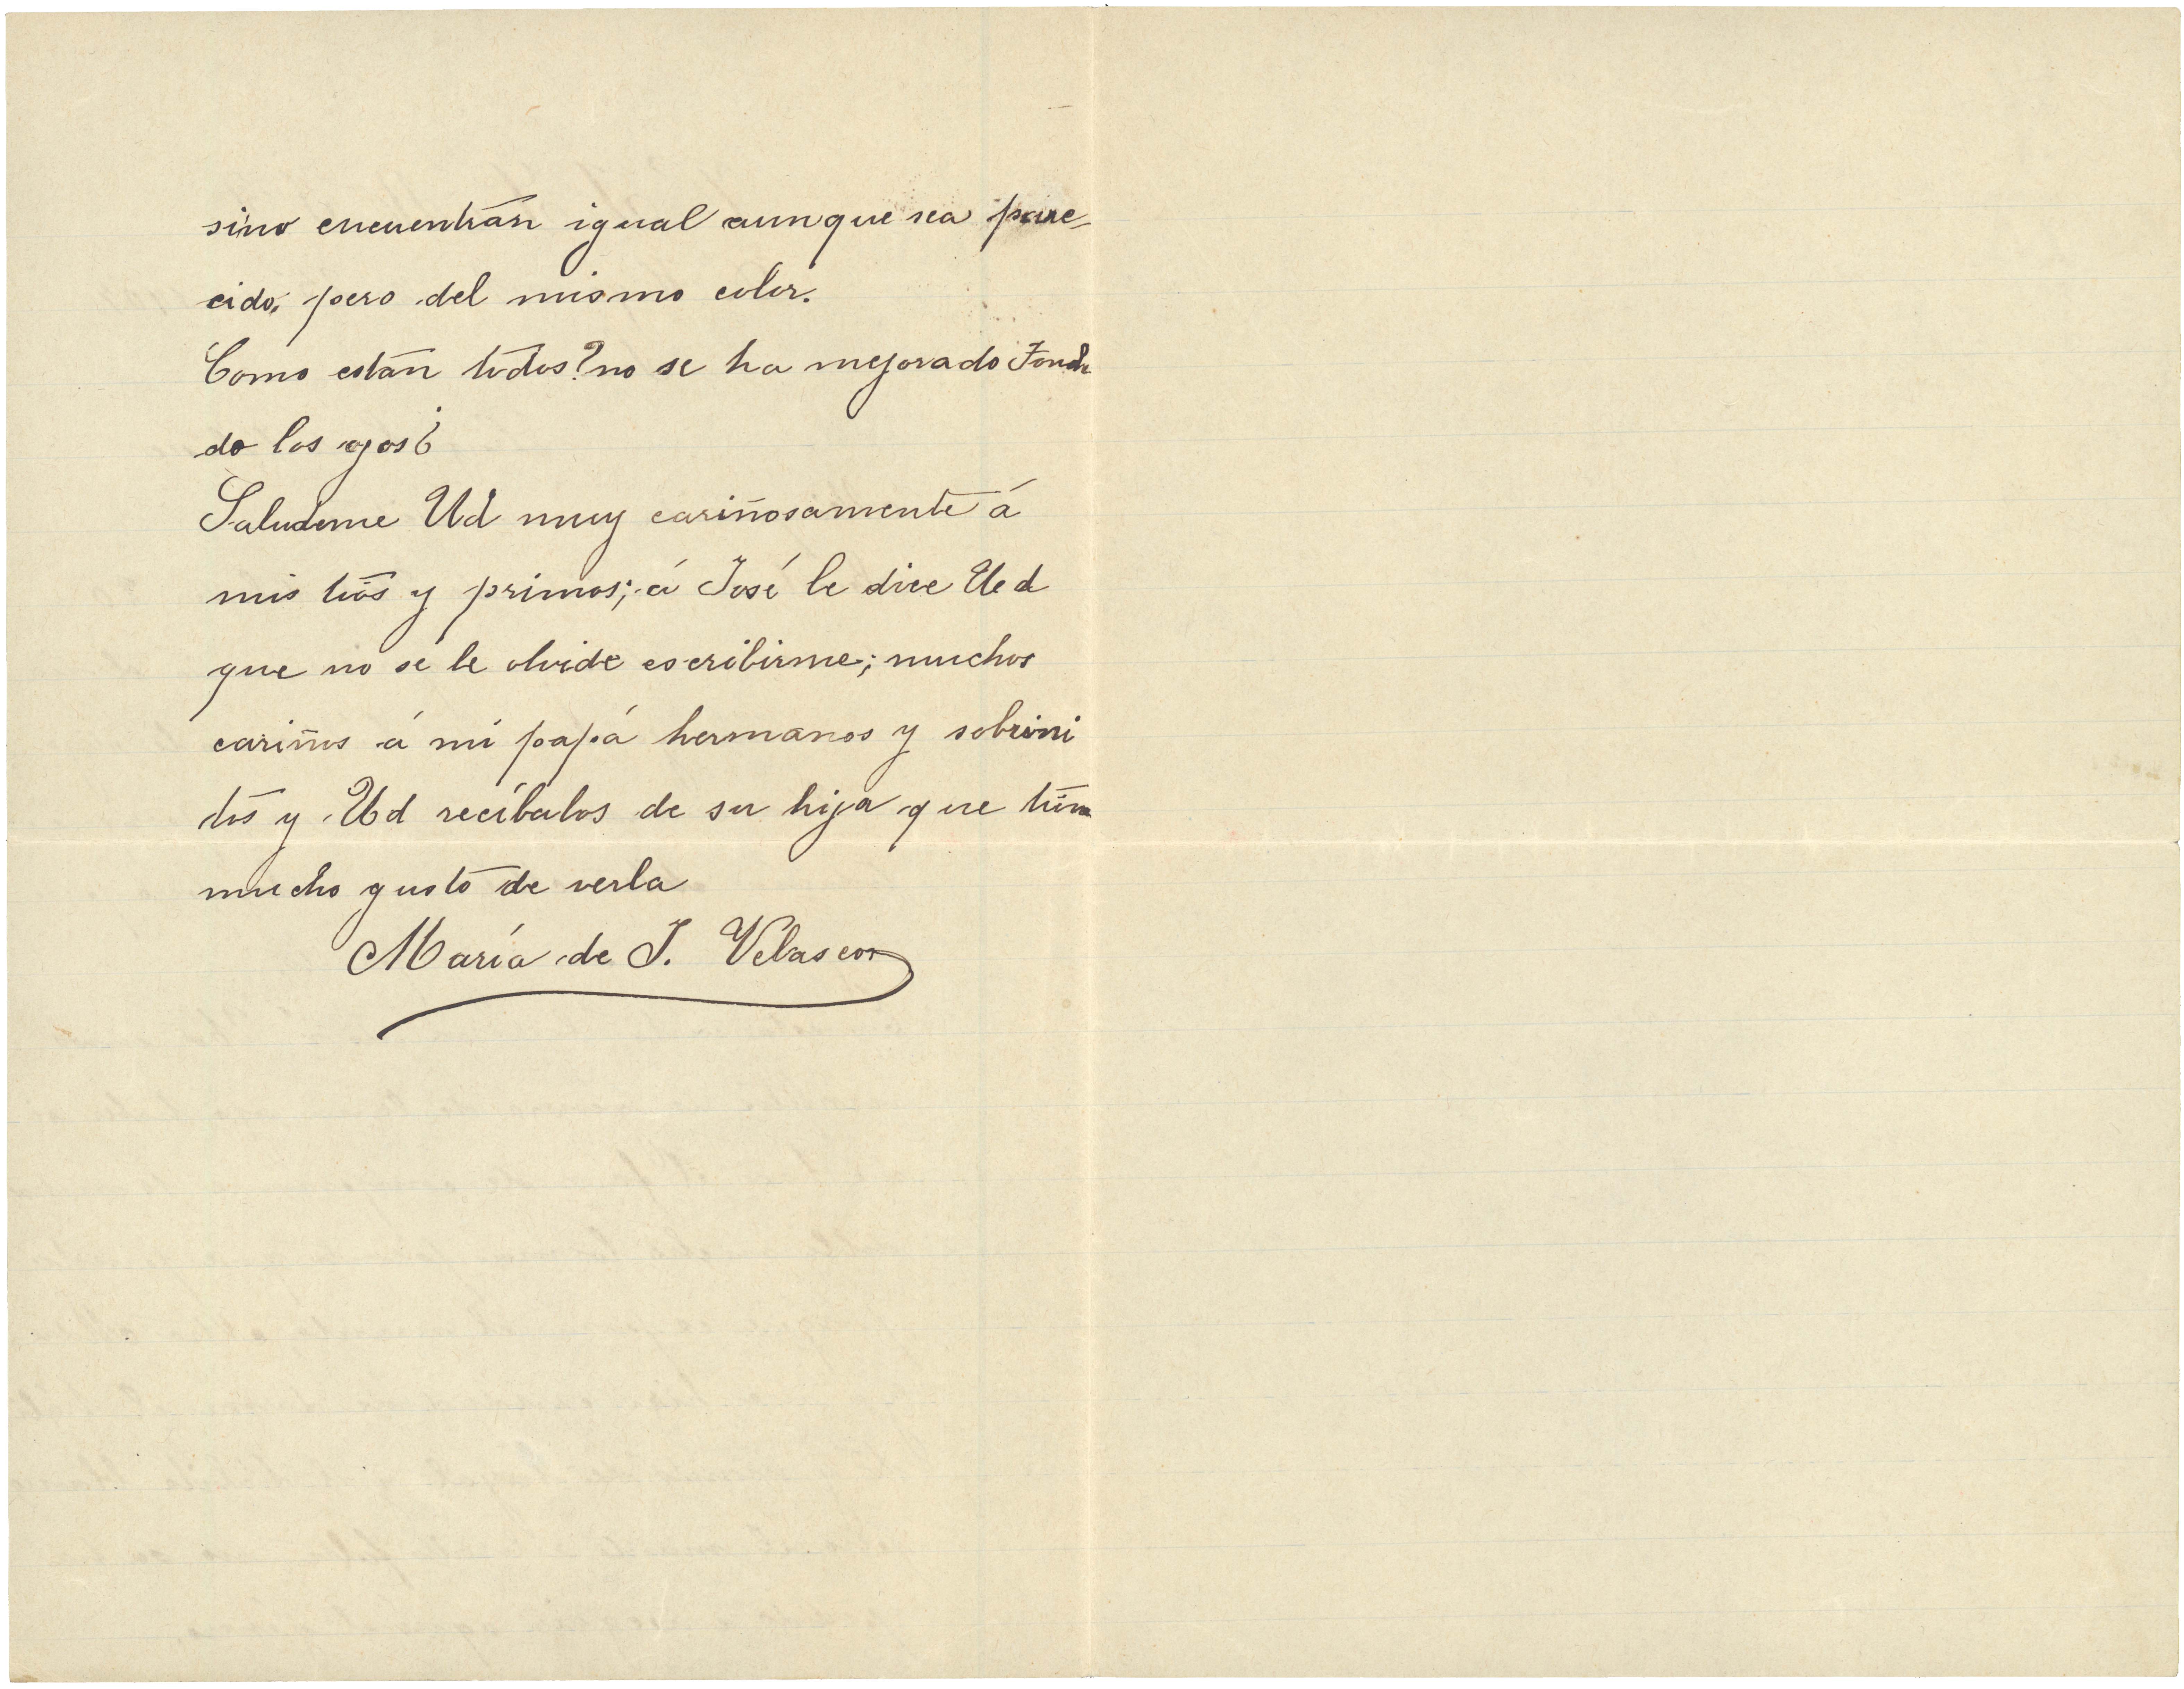 sino encuentran igual aunque sea pare-
cido, pero del mismo color.
Como estan todos? no se ha mejorado
do los ojos¿
Saludeme Ud muy cariñosamente á
mis tios y primos; á José le dice Ud
que no se le olvide escribirme; muchos
cariños á mi papá hermanos y sobrini
tos y Ud recíbalos de su hija que tiene
mucho gusto de verla
María de J. Velasco